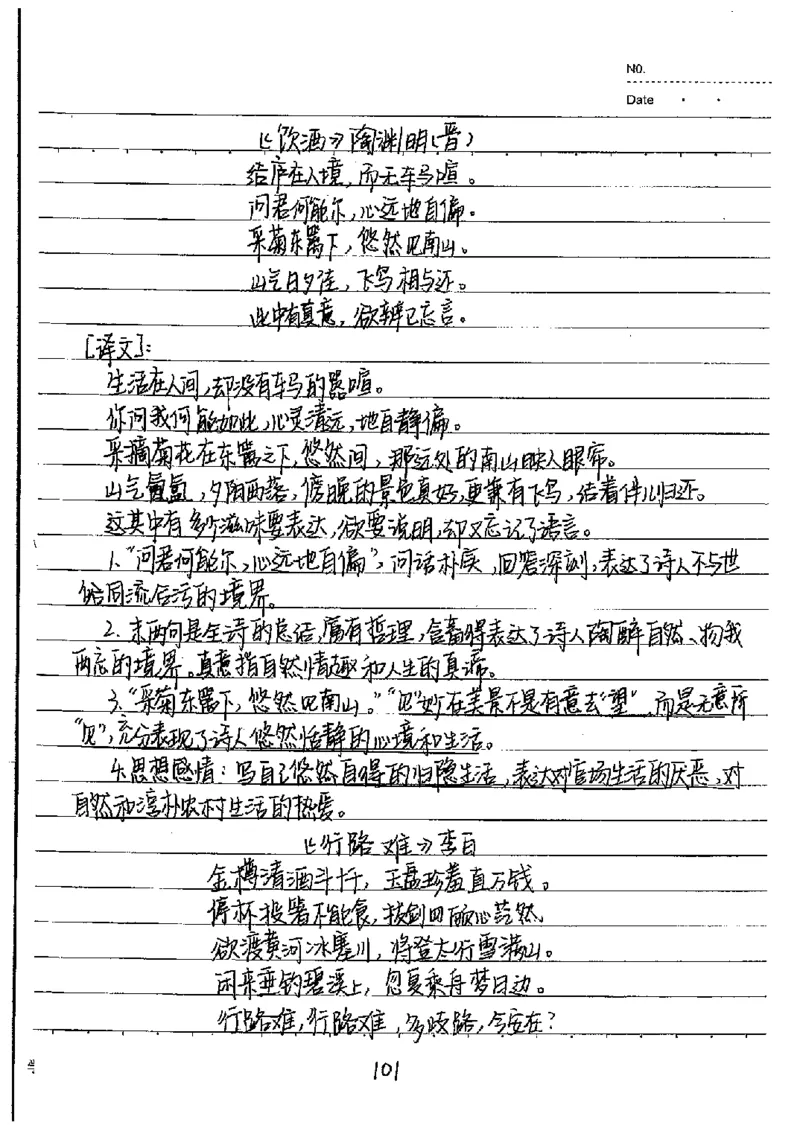 NO.
Date
《饮酒》陶渊明(晋)
结庐在人境，而无车马喧。
问君何能尔，心远地自偏。
采菊东篱下，悠然见南山。
山气日夕佳，飞鸟相与还。
此中有真意，欲辨已忘言。
[译文]：
生活在人间，却没有车马的嚣喧。
你问我何能如此，心灵清远，地自静偏。
采摘菊花在东篱之下，悠然间，那远处的南山映入眼帘。
山气氤氲，夕阳西落，傍晚的景色真好，更兼有飞鸟，结着伴儿归还。
这其中有多少滋味要表达，欲要说明，却又忘记了语言。
1. "问君何能尔，心远地自偏"，问话朴质，回答深刻，表达了诗人不与世
俗同流合污的境界。
2. 末两句是全诗的总结，富有哲理，含蓄得表达了诗人陶醉自然、物我
两忘的境界。真意指自然情趣和人生的真谛。
3. "采菊东篱下，悠然见南山。""见"妙在美景不是有意去"望"，而是无意所
"见"，充分表现了诗人悠然恬静的心境和生活。
4. 思想感情：写自己悠然自得的归隐生活，表达对官场生活的厌恶，对
自然和淳朴农村生活的热爱。
《行路难》李白
金樽清酒斗十千，玉盘珍羞直万钱。
停杯投箸不能食，拔剑四顾心茫然。
欲渡黄河冰塞川，将登太行雪满山。
闲来垂钓碧溪上，忽复乘舟梦日边。
行路难，行路难，多歧路，今安在？
101